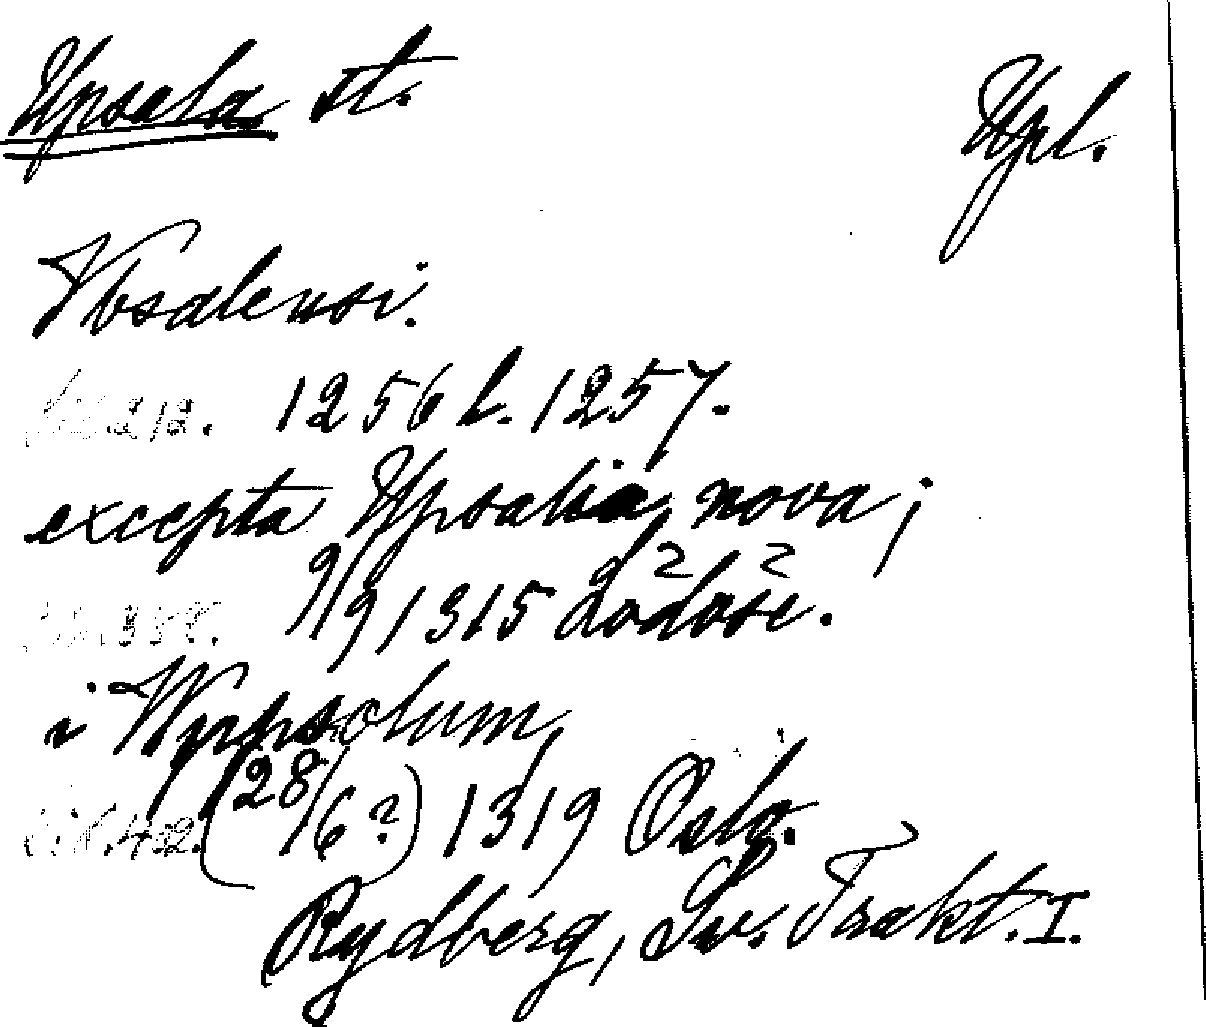 Upsala st. Upl.
Vbsalensi.
1256 l. 1257.
excepta Upsalia nova;
9/9 1315 Lödöse.
i Wppsolum,
(28/6?) 1319 Oslo.
Rydberg, Sv. Trakt. I.